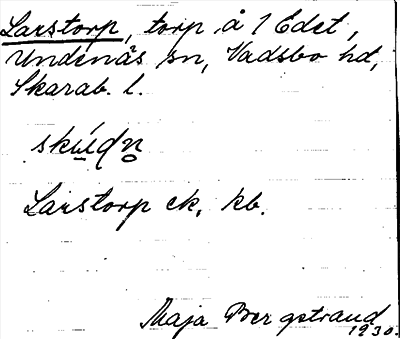 Larstorp, torp å 1 Edet,
Undenäs sn, Vadsbo hd,
Skarab. l.
Larstorp ek. kb.
Maja Bergstrand
1930.